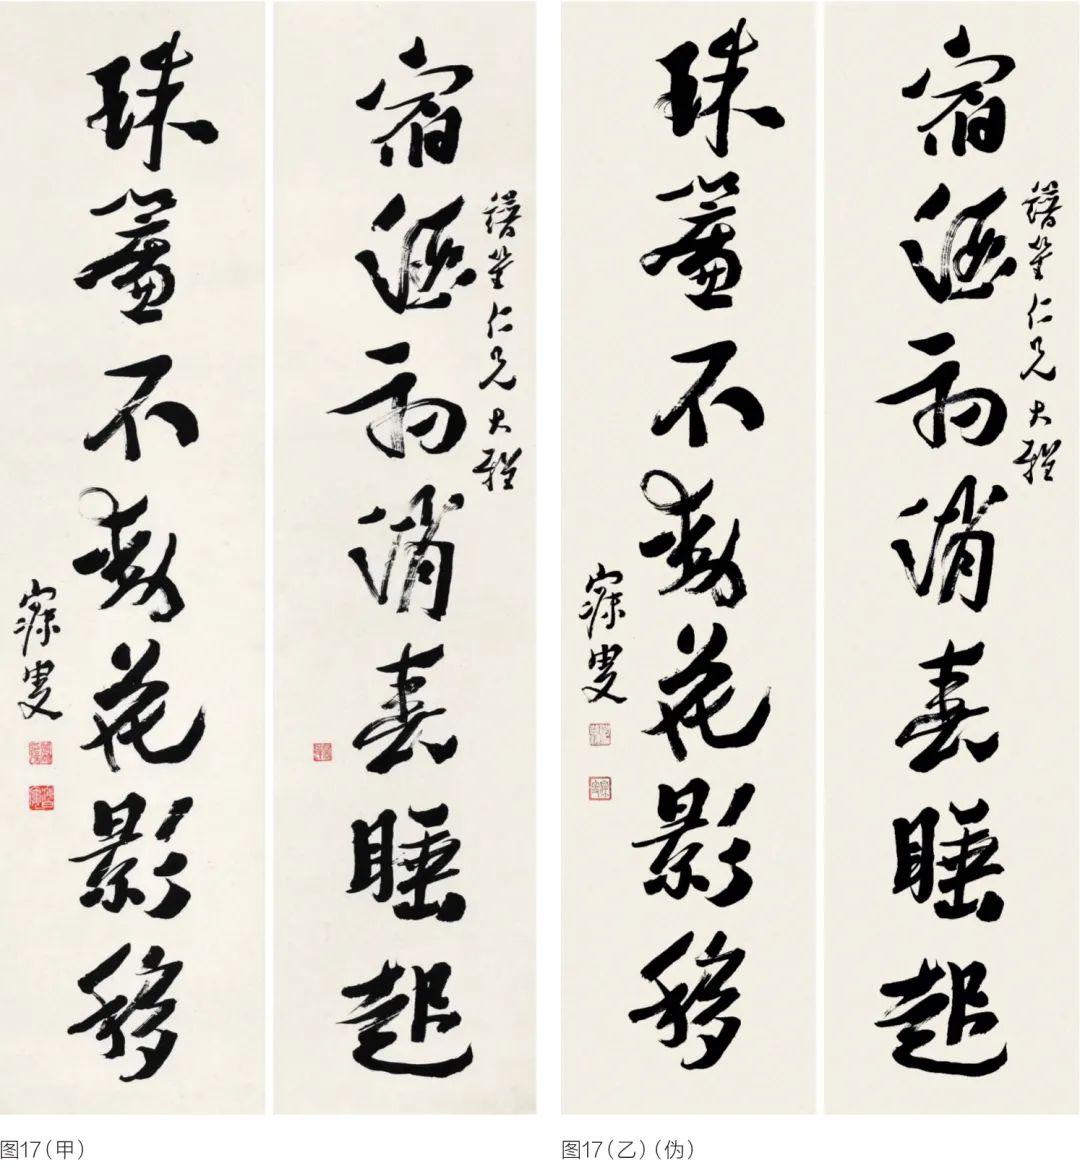 縉笙仁兄大雅
宿酒初消春睡起
珠簾不動花影移
寐叟
縉笙仁兄大雅
宿酒初消春睡起
珠簾不動花影移
寐叟
图17（甲）
图17（乙）（伪）